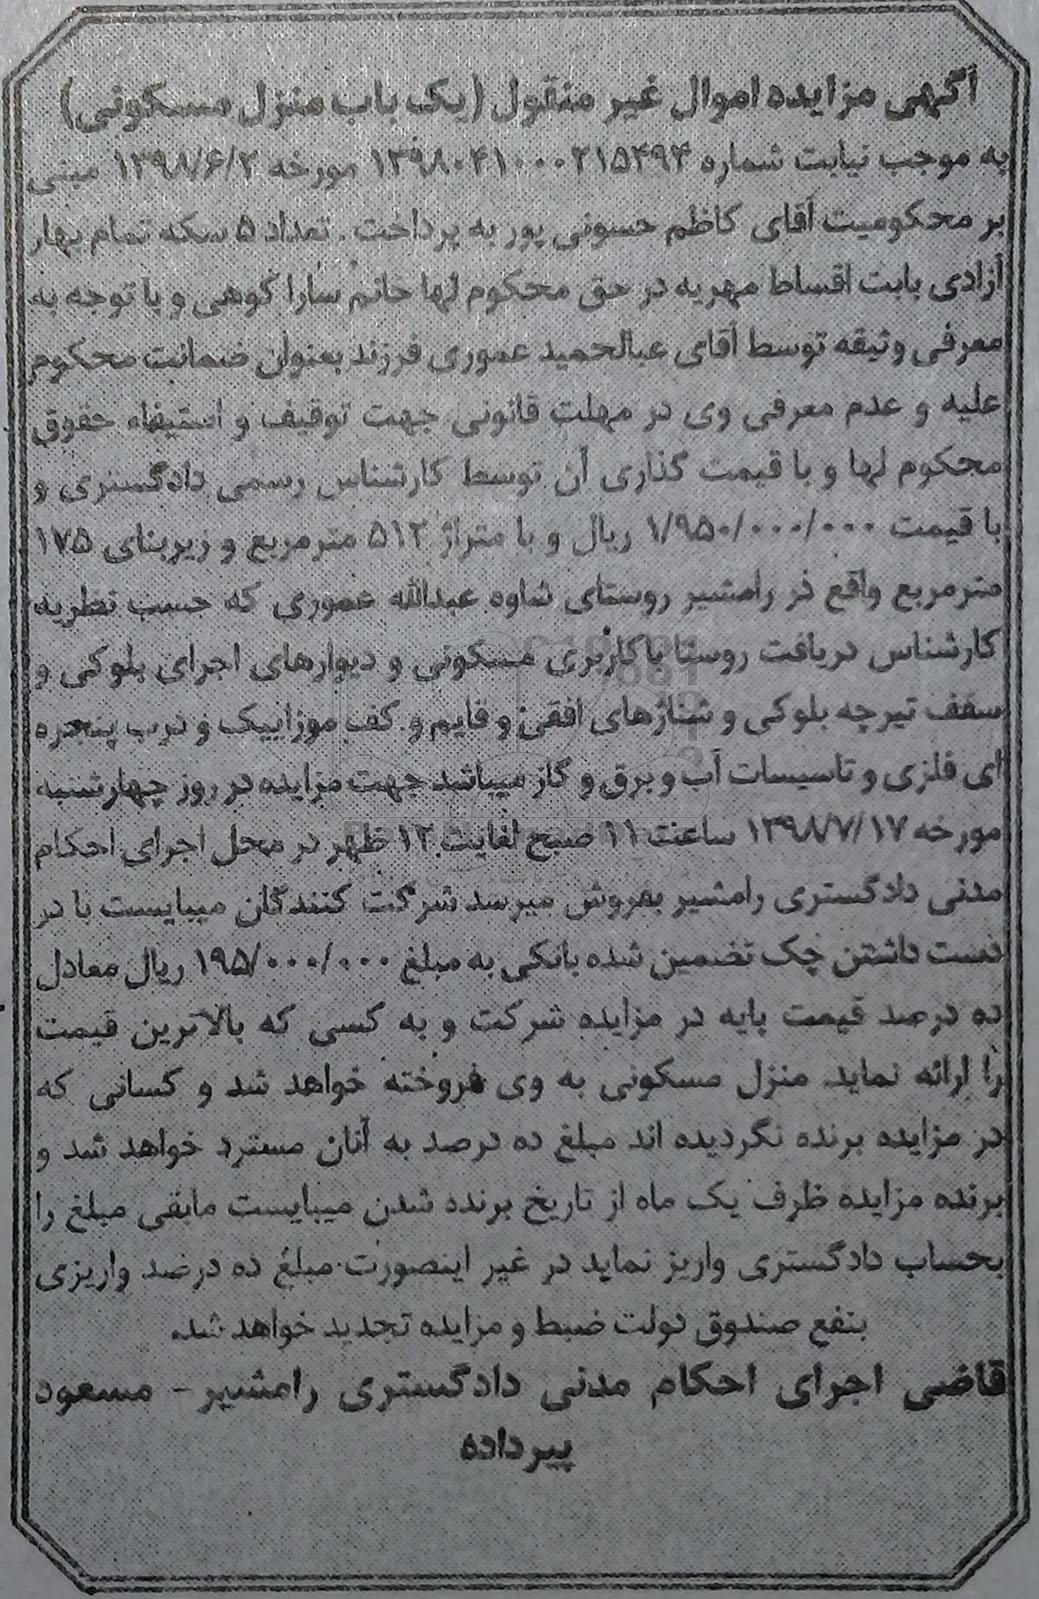 آگهی مزایده اموال غیر منقول (یک باب منزل مسکونی)
به موجب نیابت شماره ۱۳۹۸۰۴۱۰۰۰۲۱۵۴۹۴ مورخه ۱۳۹۸/۶/۲ مبنی
بر محکومیت آقای کاظم حسونی پور به پرداخت . تعداد ۵ سکه تمام بهار
آزادی بابت اقساط مهریه در حق محکوم لها خانم سارا کوهی و با توجه به
معرفی وثیقه توسط آقای عبالحمید عموری فرزند بعنوان ضمانت محکوم
علیه و عدم معرفی وی در مهلت قانونی جهت توقیف و استیفاء حقوق
محکوم لها و با قیمت گذاری آن توسط کارشناس رسمی دادگستری و
با قیمت ۱/۹۵۰/۰۰۰/۰۰۰ ریال و با متراژ ۵۱۲ مترمربع و زیربنای ۱۷۵
مترمربع واقع در رامشیر روستای شاوه عبدالله عموری که حسب نظریه
کارشناس دربافت روستا باکاربری مسکونی و دیوارهای اجرای بلوکی و
سقف تیرچه بلوکی و شناژهای افقی و قایم و کف موزاییک و درب پنجره
ای فلزی و تاسیسات آب و برق و گاز میباشد جهت مزایده در روز چهارشنبه
مورخه ۱۳۹۸/۷/۱۷ ساعت ۱۱ صبح لغایت ۱۲ ظهر در محل اجرای احکام
مدنی دادگستری رامشیر بفروش میرسد شرکت کنندگان میبایست با در
دست داشتن چک تضمین شده بانکی به مبلغ ۱۹۵/۰۰۰/۰۰۰ ریال معادل
ده درصد قیمت پایه در مزایده شرکت و به کسی که بالاترین قیمت
را ارائه نماید منزل مسکونی به وی فروخته خواهد شد و کسانی که
در مزایده برنده نگردیده اند مبلغ ده درصد به آنان مسترد خواهد شد و
برنده مزایده ظرف یک ماه از تاریخ برنده شدن میبایست مابقی مبلغ را
بحساب دادگستری واریز نماید در غیر اینصورت مبلغ ده درصد واریزی
بنفع صندوق دولت ضبط و مزایده تجدید خواهد شد.
قاضی اجرای احکام مدنی دادگستری رامشیر - مسعود
پیرداده